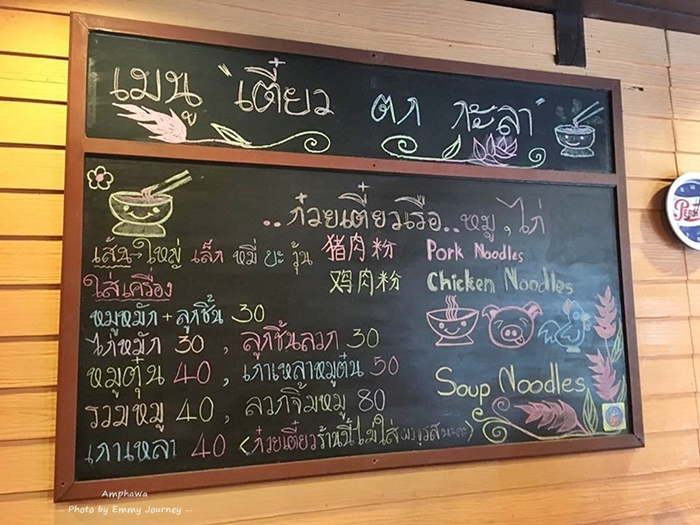 เมนู "เตี๋ยว ตก กะลา"
..ก๋วยเตี๋ยวเรือ..หมู , ไก่
เส้น→ใหญ่ เล็ก หมี่ บะ วุ้น 猪肉粉 Pork Noodles
ใส่เครื่อง 鸡肉粉 Chicken Noodles
หมูหมัก + ลูกชิ้น 30
ไก่หมัก 30 , ลูกชิ้นลวก 30
หมูตุ๋น 40 , เกาเหลาหมูตุ๋น 50
Soup Noodles
รวมหมู 40 , ลวกจิ้มหมู 80
เกาเหลา 40 <ก๋วยเตี๋ยวร้านนี้ไม่ใส่
Amphawa
Photo by Emmy Journey